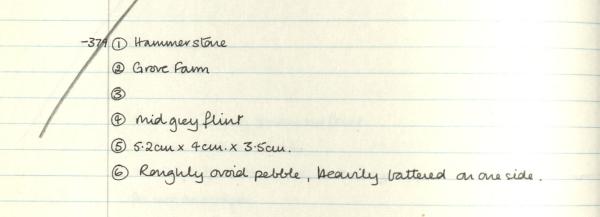 -379 ① Hammerstone
② Grove Farm
③
④ mid grey flint
⑤ 5.2cm x 4cm. x 3.5cm.
⑥ Roughly ovoid pebble, heavily battered on one side.